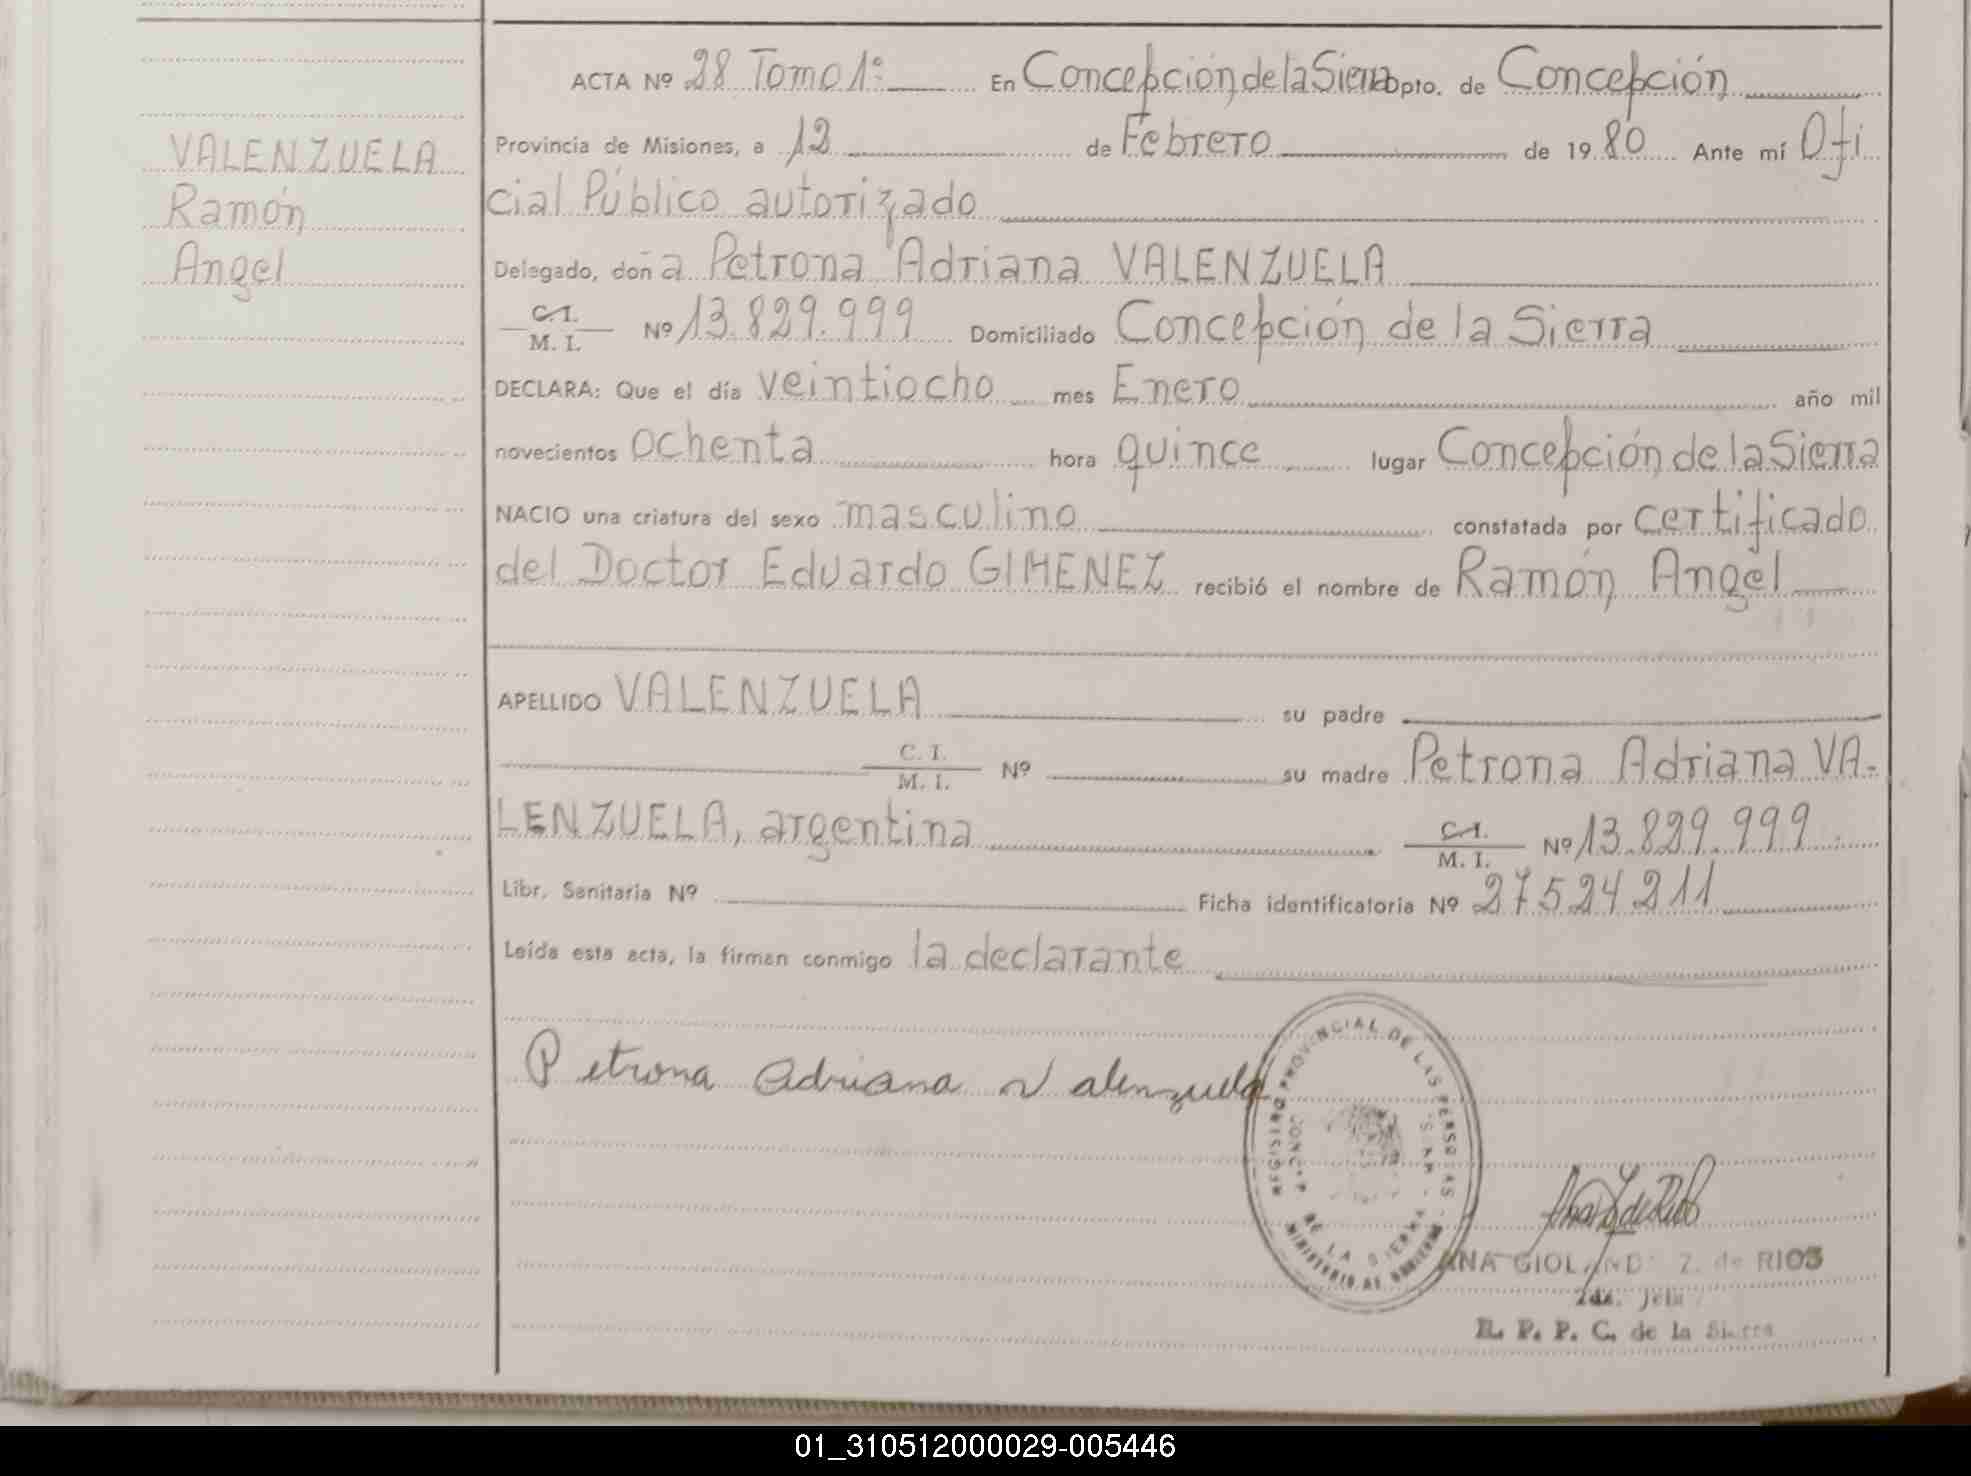 ACTA Nº 28 Tomo 1º En Concepción de la Sierra Dpto. de Concepción
VALENZUELA
Ramón
Angel
Provincia de Misiones, a 12 de Febrero de 1980 Ante mí Ofi
cial Público autorizado
Delegado, doña Petrona Adriana VALENZUELA
C.I.
M. I. Nº 13.829.999 Domiciliado Concepción de la Sierra
DECLARA: Que el día veintiocho mes Enero año mil
novecientos ochenta hora quince lugar Concepción de la Sierra
NACIO una criatura del sexo masculino constatada por certificado
del Doctor Eduardo GIMENEZ recibió el nombre de Ramón Angel
APELLIDO VALENZUELA su padre
C. I.
M. I. Nº su madre Petrona Adriana VA-
LENZUELA, argentina C.I.
M. I. Nº 13.829.999
Libr. Sanitaria Nº Ficha identificatoria Nº 27524211
Leída esta acta, la firman conmigo la declarante
Petrona Adriana Valenzuela
REGISTRO PROVINCIAL DE LAS PERSONAS
DE LA SIERRA
MINISTERIO DE GOBIERNO
ANA Z. de RIOS
2da. Jefa
R. P. P. C. de la Sierra
01_310512000029-005446